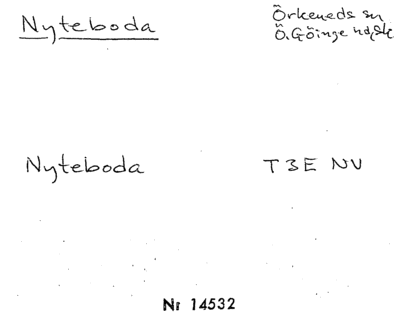 Nyteboda
Örkeneds sn
Ö. Göinge hd, Sk
Nyteboda T3E NV
Nr 14532